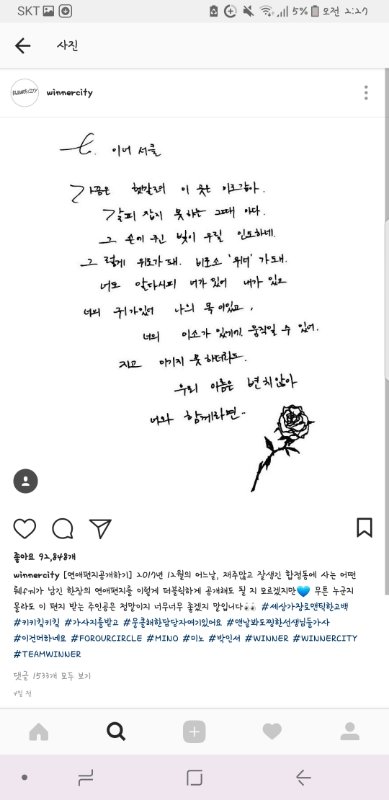 SKT 5% 오전 2:27
사진
winnercity
이너 서클
가끔은 헷갈려 이 웃는 이모티콘
갈피 잡지 못하는 그때 마다.
그 손에 쥔 빛이 우릴 인도하네.
그렇게 위로가 돼. 비로소 '위너' 가 돼.
너도 알다시피 너가 있어 내가 있고
너의 귀가 있어 나의 목이 있고,
너의 미소가 있기에 움직일 수 있어.
지고 이기지 못 하더라도.
우리 이름은 변치않아
너와 함께라면..
좋아요 92,848개
winnercity [연애편지공개하기] 2017년 12월의 어느날, 재주많고 잘생긴 합정동에 사는 어떤
이 남긴 한장의 연애편지를 이렇게 퍼블릭하게 공개해도 될 지 모르겠지만💙 무튼 누군지
몰라도 이 편지 받는 주인공은 정말이지 너무너무 좋겠지 말입니다👀 #세상가장로맨틱한고백
#키키킥키킼 #가사지를받고 #뭉클해한담당자여기있어요 #옛날봐도찡한선생님들가사
#이건머하네요 #FOROURCIRCLE #MINO #미노 #박인서 #WINNER #WINNERCITY
#TEAMWINNER
댓글 1533개 모두 보기
4일 전